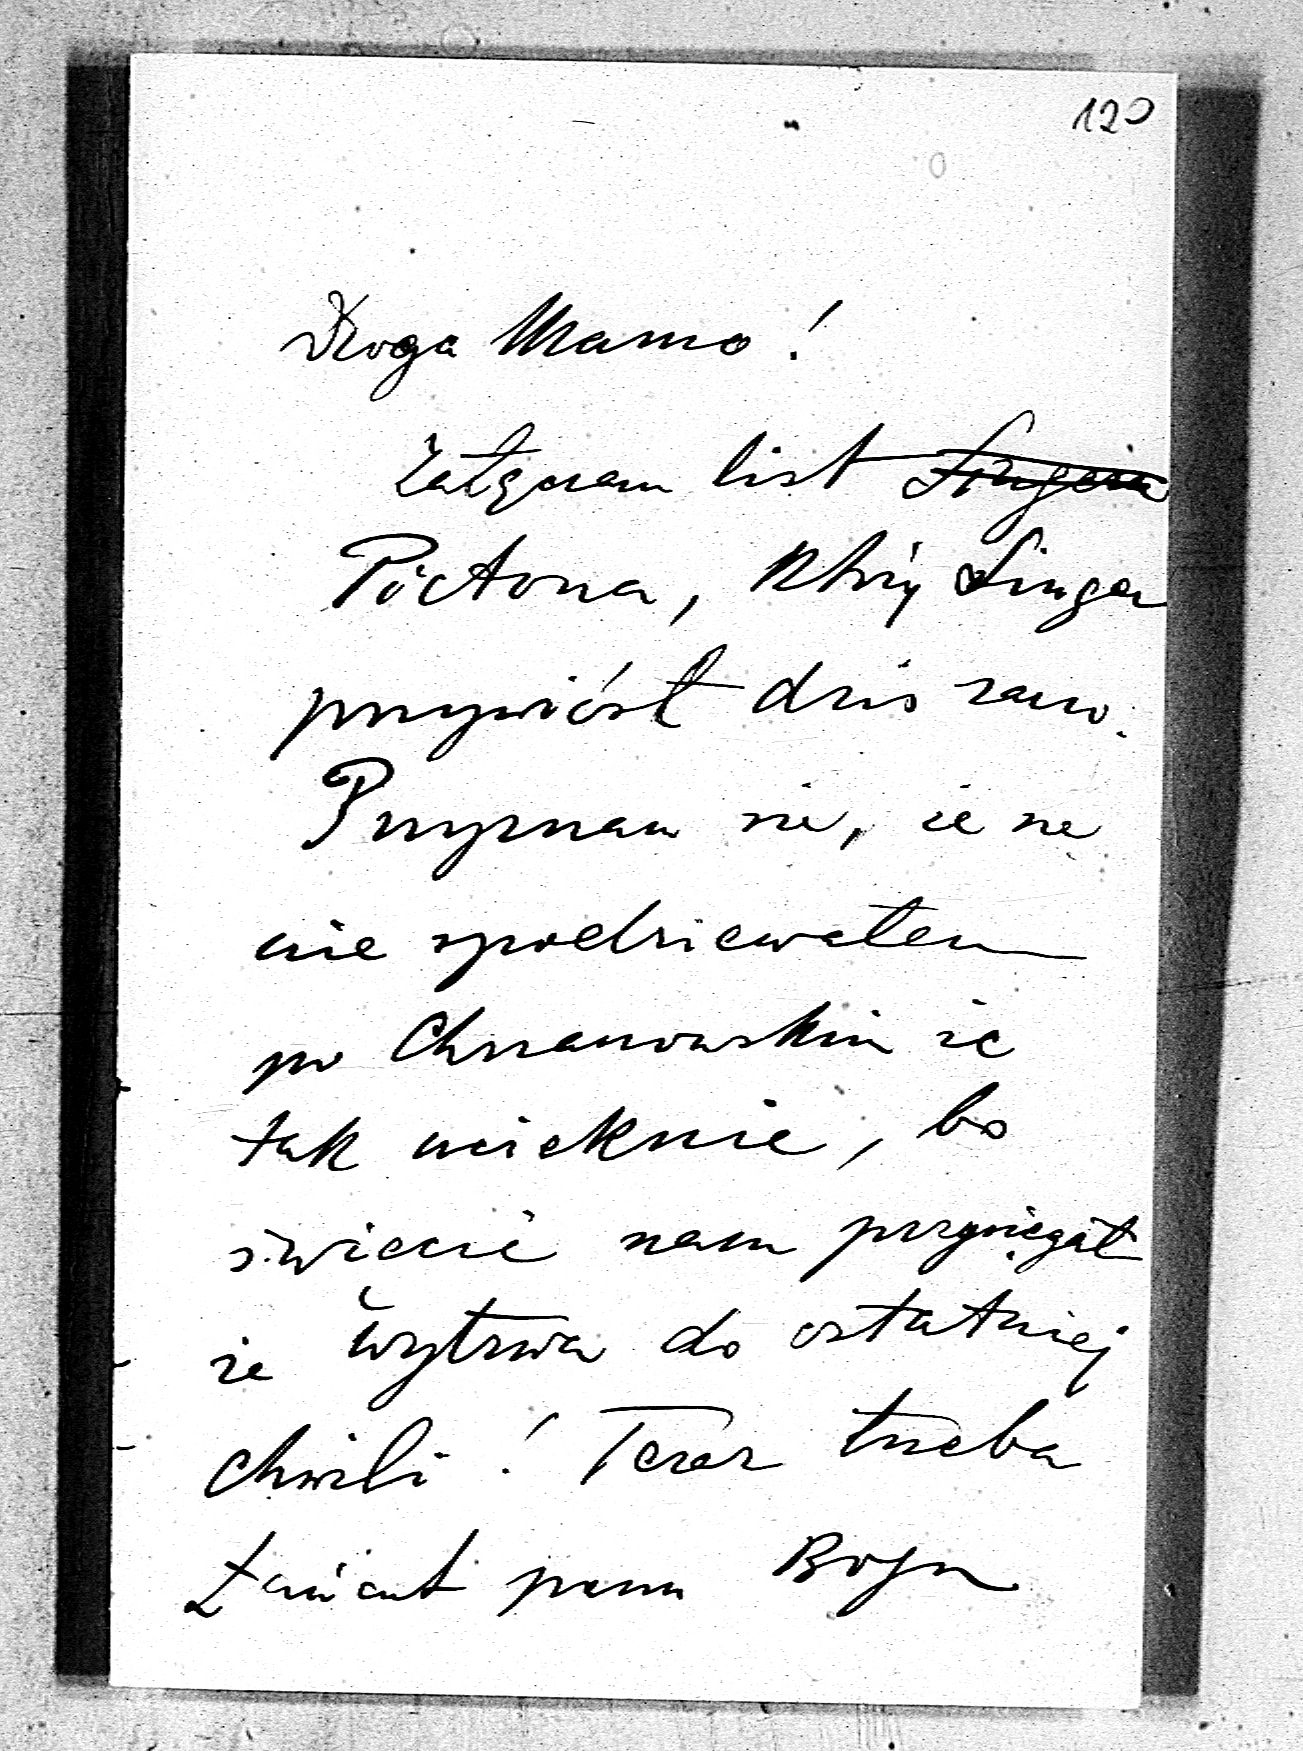 120
Droga Mamo!
Załączam list Singera
Pictona, który Singer
przywiózł dziś rano.
Przyznam się, że się
nie spodziewałem
po Chrzanowskim że
tak ucieknie, bo
święcie nam przysięgał
że wytrwa do ostatniej
chwili! Teraz trzeba
Łańcut panu Bogu